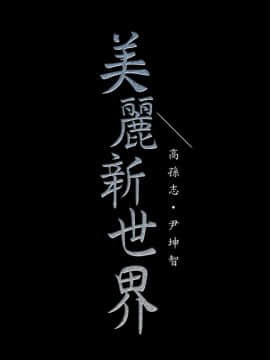 美麗新世界
高孫志・尹坤智